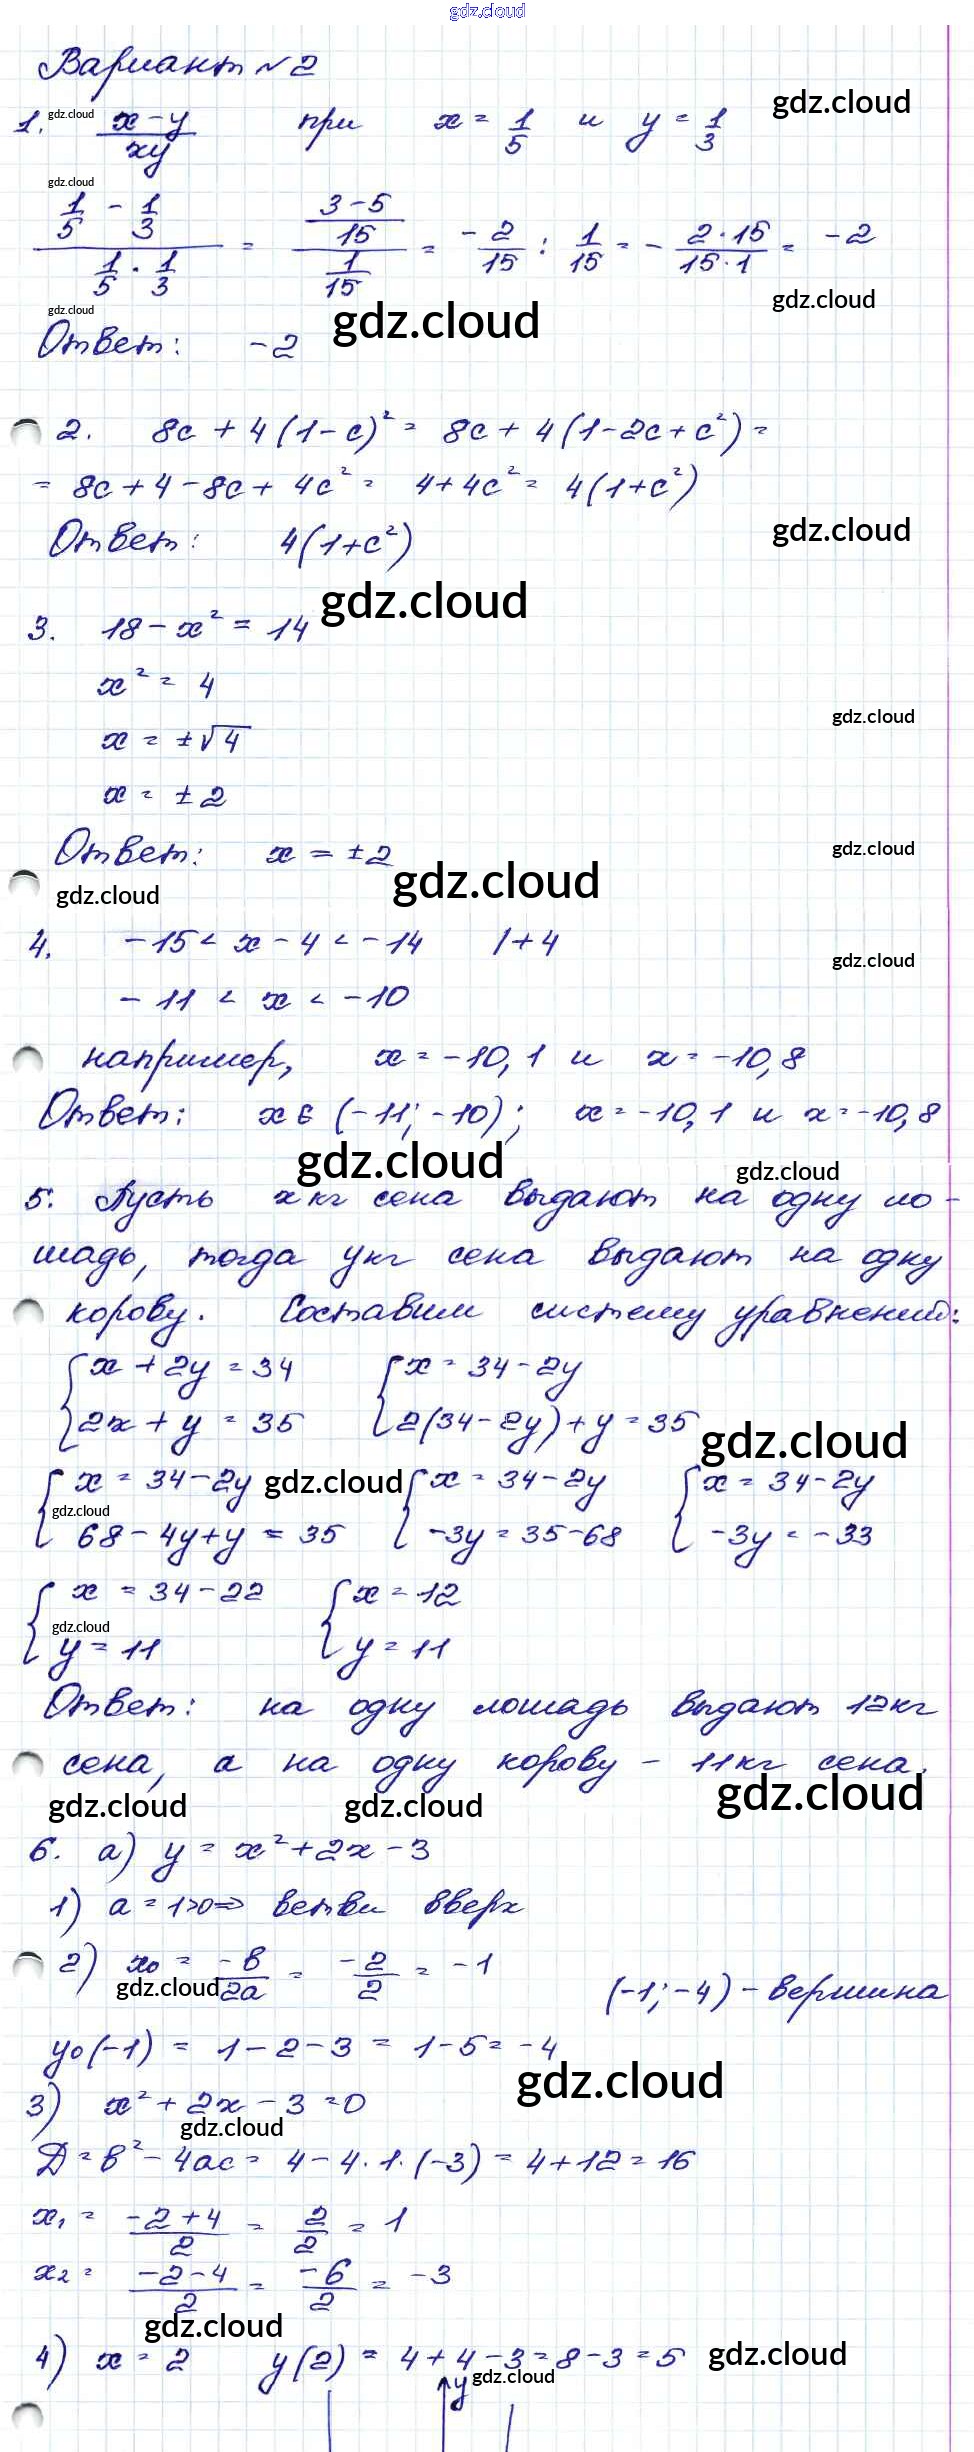 gdz.cloud
Вариант №2
gdz.cloud
1. gdz.cloud (x-y)/(xy) при x = 1/5 и y = 1/3
gdz.cloud
(1/5 - 1/3)/(1/5 · 1/3) = ((3-5)/15)/(1/15) = -2/15 : 1/15 = - (2·15)/(15·1) = -2
gdz.cloud
gdz.cloud
gdz.cloud
Ответ: -2
2. 8c + 4(1-c)² = 8c + 4(1-2c+c²) =
= 8c+4-8c+4c² = 4+4c² = 4(1+c²)
gdz.cloud
Ответ: 4(1+c²)
gdz.cloud
3. 18-x² = 14
x² = 4
gdz.cloud
x = ±√4
x = ±2
Ответ: x = ±2
gdz.cloud
gdz.cloud
gdz.cloud
4. -15 < x-4 < -14 |+4
gdz.cloud
-11 < x < -10
например, x = -10,1 и x = -10,8
Ответ: x ∈ (-11; -10); x = -10,1 и x = -10,8
gdz.cloud
gdz.cloud
5. Пусть x кг сена выдают на одну ло-
шадь, тогда y кг сена выдают на одну
корову. Составим систему уравнений:
{x+2y = 34 {x = 34-2y
{2x+y = 35 {2(34-2y)+y = 35
gdz.cloud
{x = 34-2y gdz.cloud {x = 34-2y {x = 34-2y
gdz.cloud
{68-4y+y = 35 {-3y = 35-68 {-3y = -33
{x = 34-22 {x = 12
gdz.cloud
{y = 11 {y = 11
Ответ: на одну лошадь выдают 12кг
сена, а на одну корову - 11кг сена.
gdz.cloud gdz.cloud gdz.cloud
6. а) y = x²+2x-3
1) a = 1>0 => ветви вверх
2) x₀ = -b/2a = -2/2 = -1 (-1; -4) - вершина
gdz.cloud
y₀(-1) = 1-2-3 = 1-5 = -4
gdz.cloud
3) x²+2x-3 = 0
gdz.cloud
D = b²-4ac = 4-4·1·(-3) = 4+12 = 16
x₁ = (-2+4)/2 = 2/2 = 1
x₂ = (-2-4)/2 = -6/2 = -3
gdz.cloud
4) x = 2 y(2) = 4+4-3 = 8-3 = 5 gdz.cloud
gdz.cloud
y